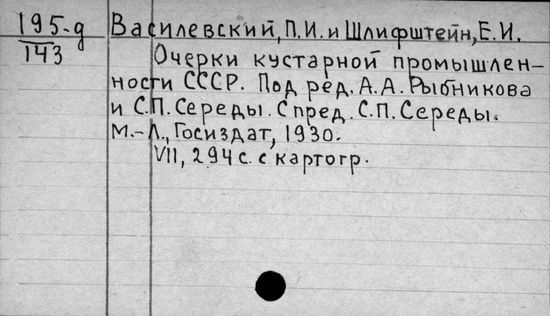 195-д
143
Василевский, П.И. и Шлифштейн, Е.И.
Очерки кустарной промышлен-
ности СССР. Под ред. А.А. Рыбникова
и С.П. Середы. С пред. С.П. Середы.
М.-Л., Госиздат, 1930.
VII, 294 с. с картогр.